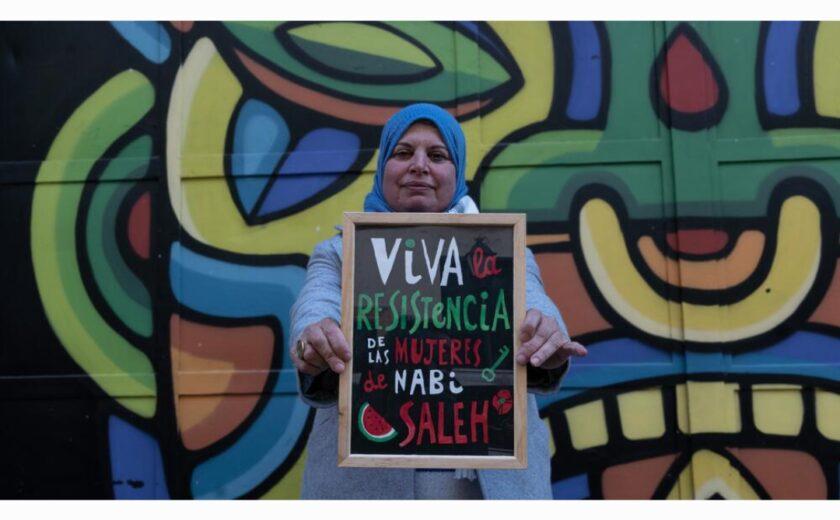 ViVA la
RESISTENCIA
DE LAS MUJERES
de NABi
SALEH